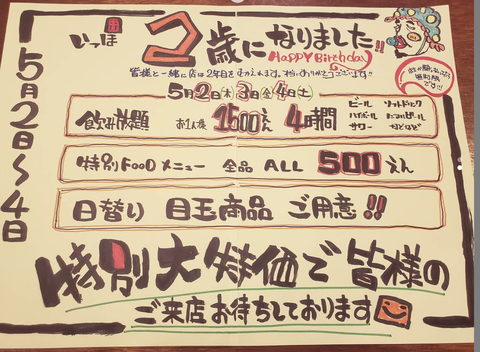 いっぽ 2歳になりました!!
Happy Birthday
皆様と一緒に店は2年目をむかえれます。本当にありがとうございます!!
5月2日(木)3日(金)4日(土)
5月2日〜4日
飲み放題 お1人様 1500えん 4時間
ビール ソフトドリンク
ハイボール
サワー などなど
特別FOODメニュー 全品 ALL 500えん
日替り 目玉商品 ご用意!!
特別大特価で皆様の
ご来店お待ちしております